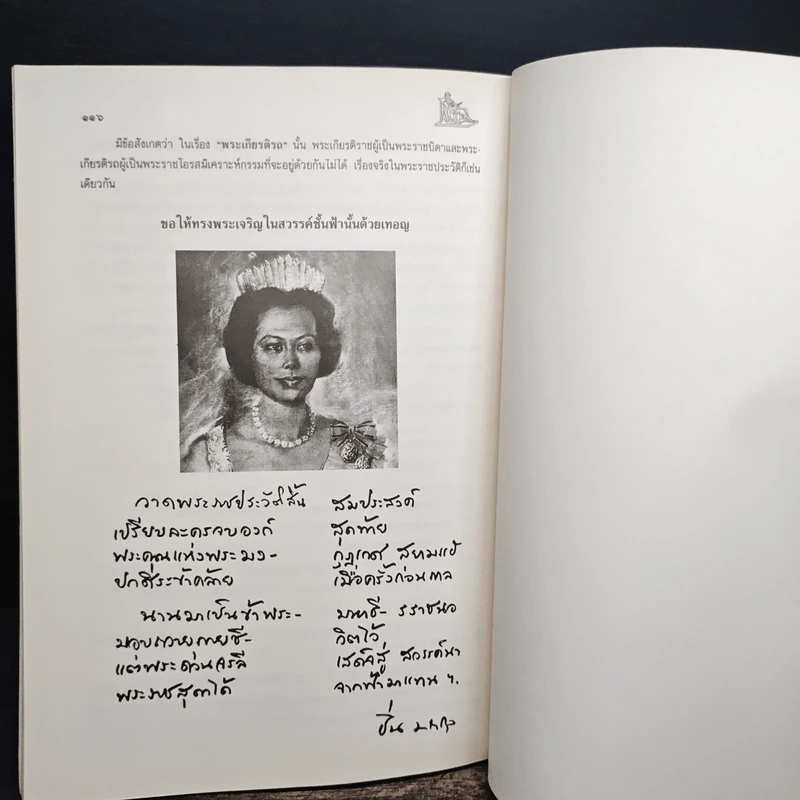 ๑๑๖
มีข้อสังเกตว่า ในเรื่อง "พระเกียรติรถ" นั้น พระเกียรติราชผู้เป็นพระราชบิดาและพระ-
เกียรติรถผู้เป็นพระราชโอรสมีเคราะห์กรรมที่จะอยู่ด้วยกันไม่ได้ เรื่องจริงในพระราชประวัติก็เช่น
เดียวกัน
ขอให้ทรงพระเจริญในสวรรค์ชั้นฟ้านั้นด้วยเทอญ
วาดพระราชประวัติสิ้น สมประสงค์
เปรียบละครจบองก์ สุดท้าย
พระคุณแห่งพระมง- กุฎเกศ สยามแฮ
ปกติระข้าคล้าย เมื่อครั้งก่อนกาล
นานมาเป็นข้าพระ- บาทธี- รราชนอ
มอบถวายกายชี- วิตไว้
แต่พระด่วนจรลี เสด็จสู่ สวรรค์นา
พระราชสุดาได้ จากฟ้ามาแทน ฯ